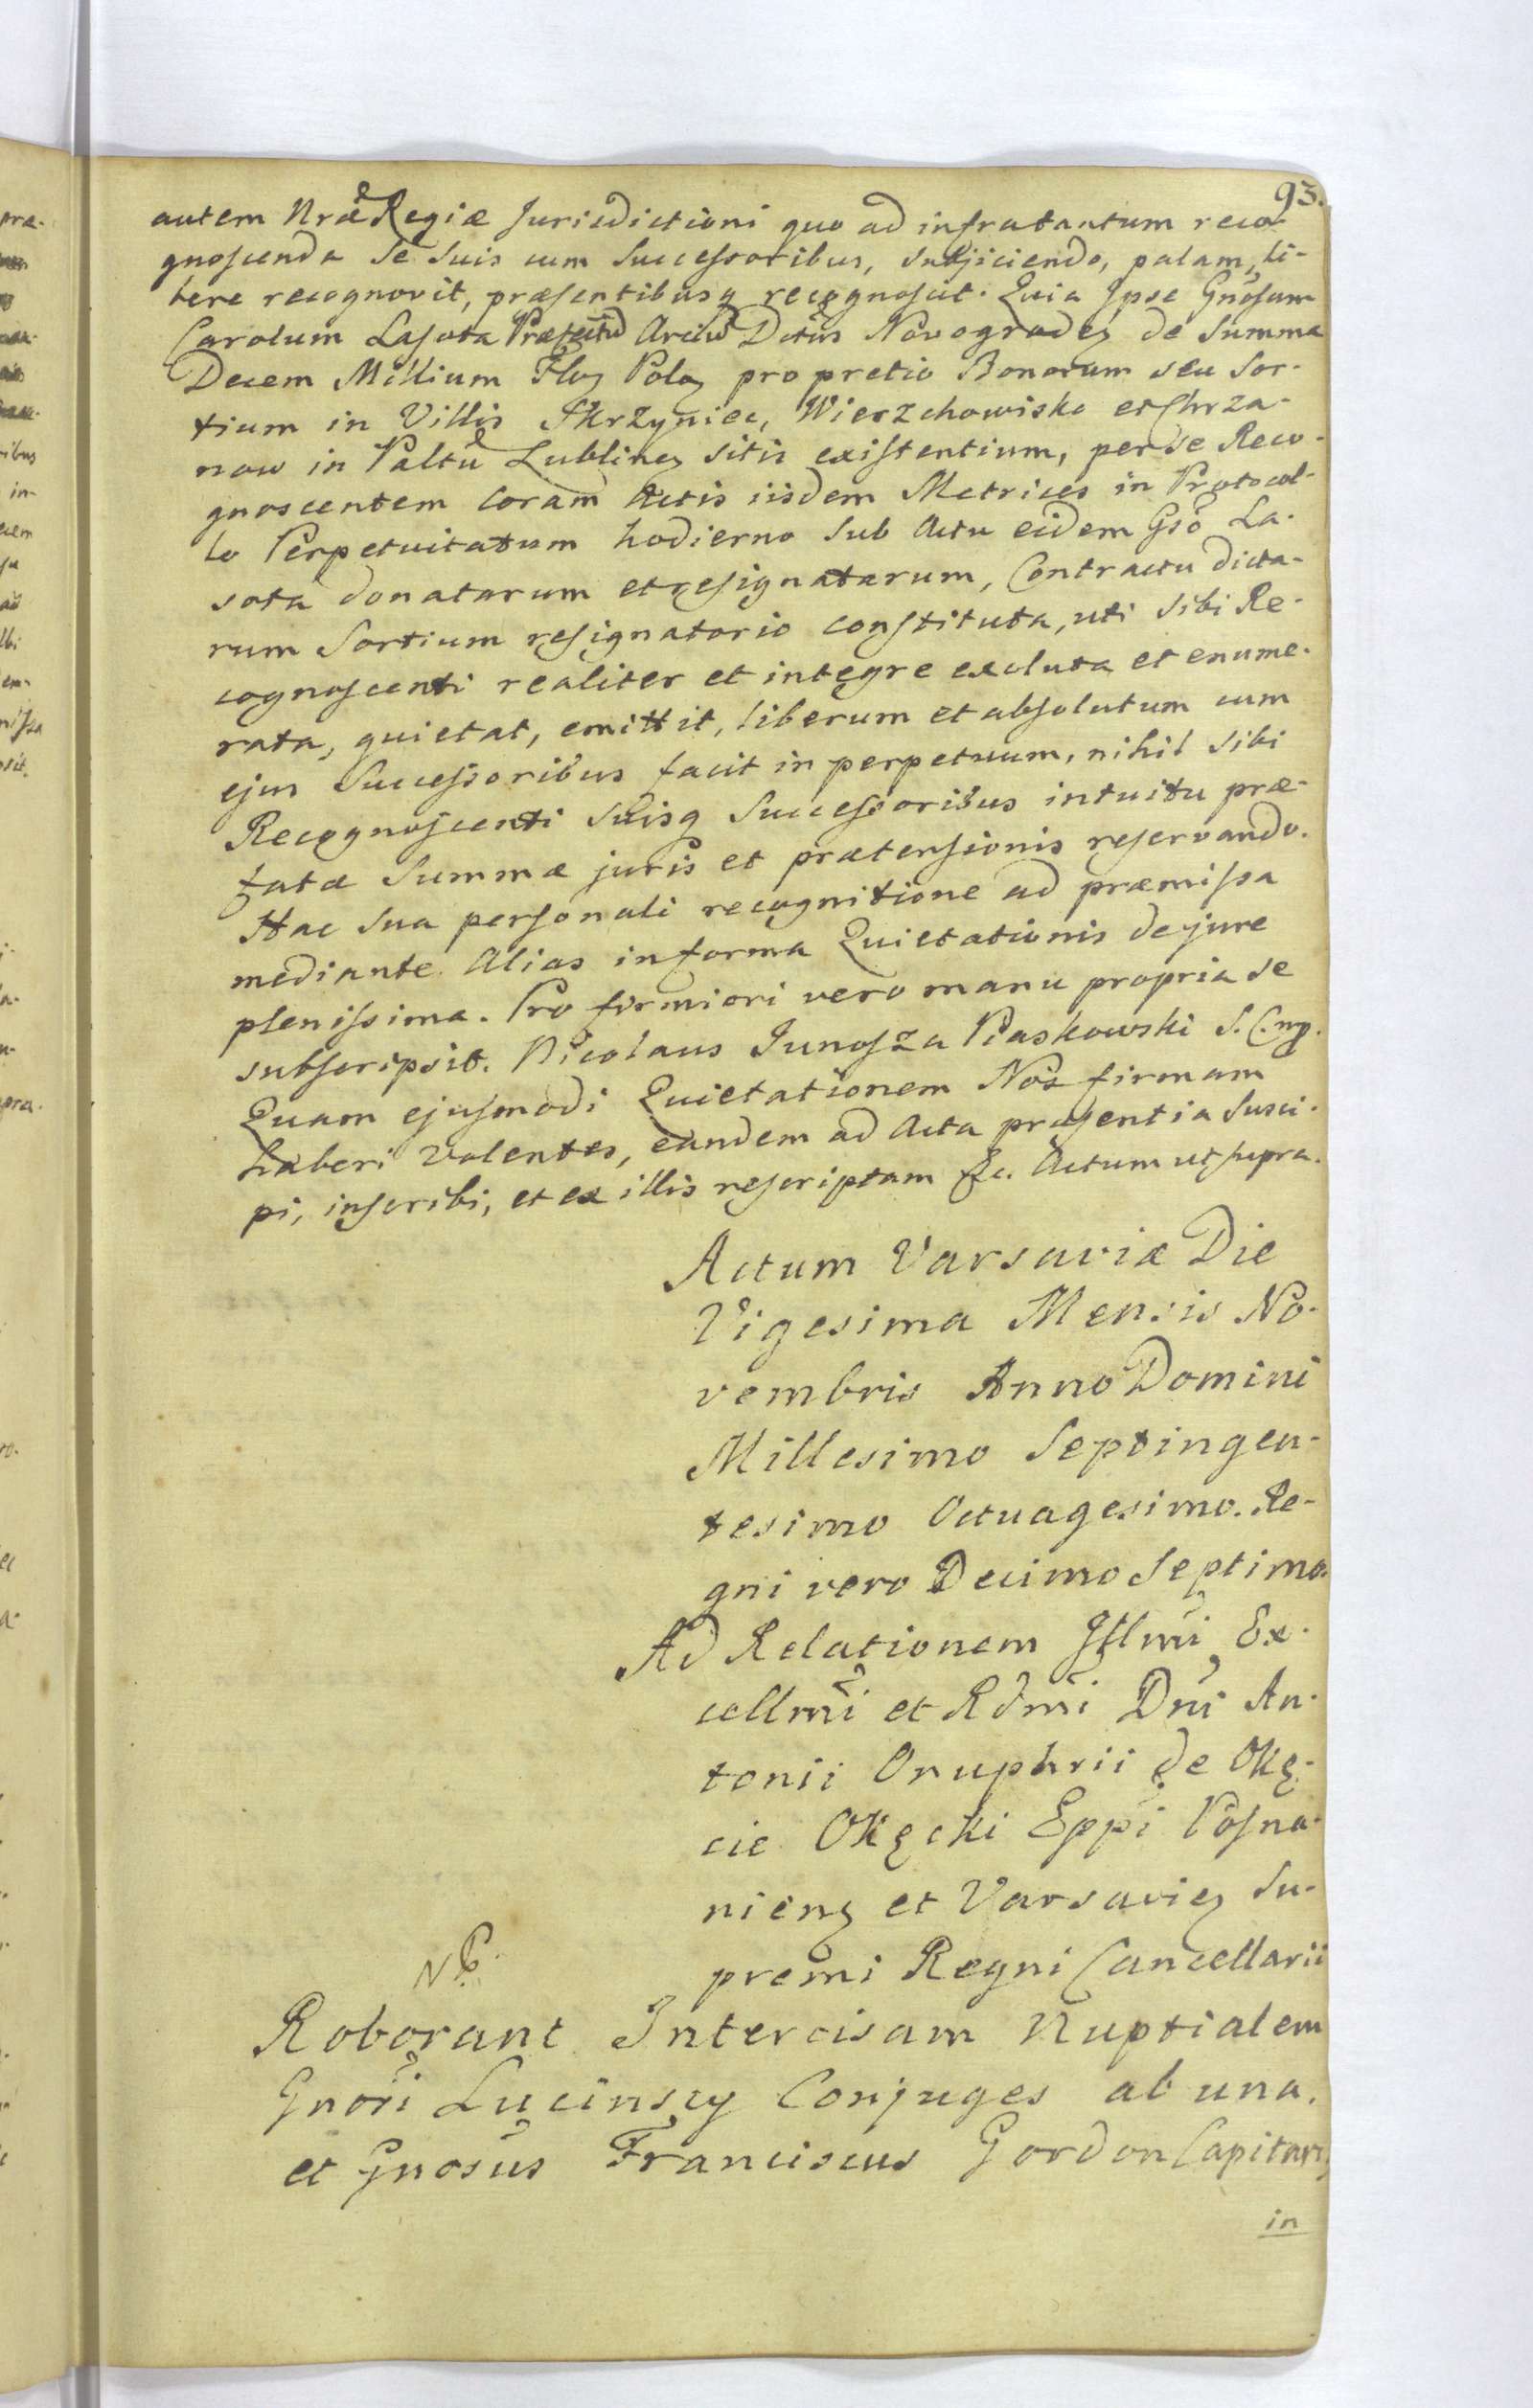 93.
autem Nrae Regiae Jurisdictioni quo ad infratantum reco-
gnoscenda Se Suis cum Successoribus, Subjiciendo, palam, li-
bere recognovit, praesentibusq recognoscit. Quia Ipse Gnosum
Carolum Lasota Praefectu Arciu Dctus Novogrodeń de Summa
Decem Millium Flor Polor pro pretio Bonorum seu Sor-
tium in Villis Skrzyniec, Wierzchowiska et Chrza-
now in Paltu Lublineń sitis existentium, per Se Reco-
gnoscentem Coram Actis iisdem Metrices in Protocol-
lo Perpetuitatum hodierno Sub Actu eidem Gso La-
sota donatarum et resignatarum, Contractu dicta-
rum Sortium resignatorio constituta, uti Sibi Re-
cognoscenti realiter et integre exoluta et enume-
rata, quietat, emittit, liberum et absolutum cum
ejus Successoribus facit in perpetuum, nihil Sibi
Recognoscenti Suisq Successoribus intuitu prae-
fatae Summae juris et praetensionis reservando.
Hac Sua personali recognitione ad praemissa
mediante. Alias in forma Quietationis de jure
plenissima. Pro firmiori vero manu propria se
subscripsit. Nicolaus Junosza Piaskowski S. C. mp.
Quam ejusmodi Quietationem Nos firmam
haberi Volentes, eandem ad Acta praesentia Susci-
pi, inscribi, et ex illis rescriptam &c. Actum ut supra.
Actum Varsaviae Die
Vigesima Mensis No-
vembris Anno Domini
Millesimo Septingen-
tesimo Octuagesimo. Re-
gni vero Decimo Septimo.
Ad Relationem Illmi, Ex-
cellmi et Rdmi Dni An-
tonii Onuphrii de Okę-
cie Okęcki Eppi Posna-
nieng et Varsavień Su-
premi Regni Cancellarii
NB.
Roborant Intercisam Nuptialem
Gnori Lucinscy Conjuges ab una.
et Gnosus Franciscus Gordon Capitan
in